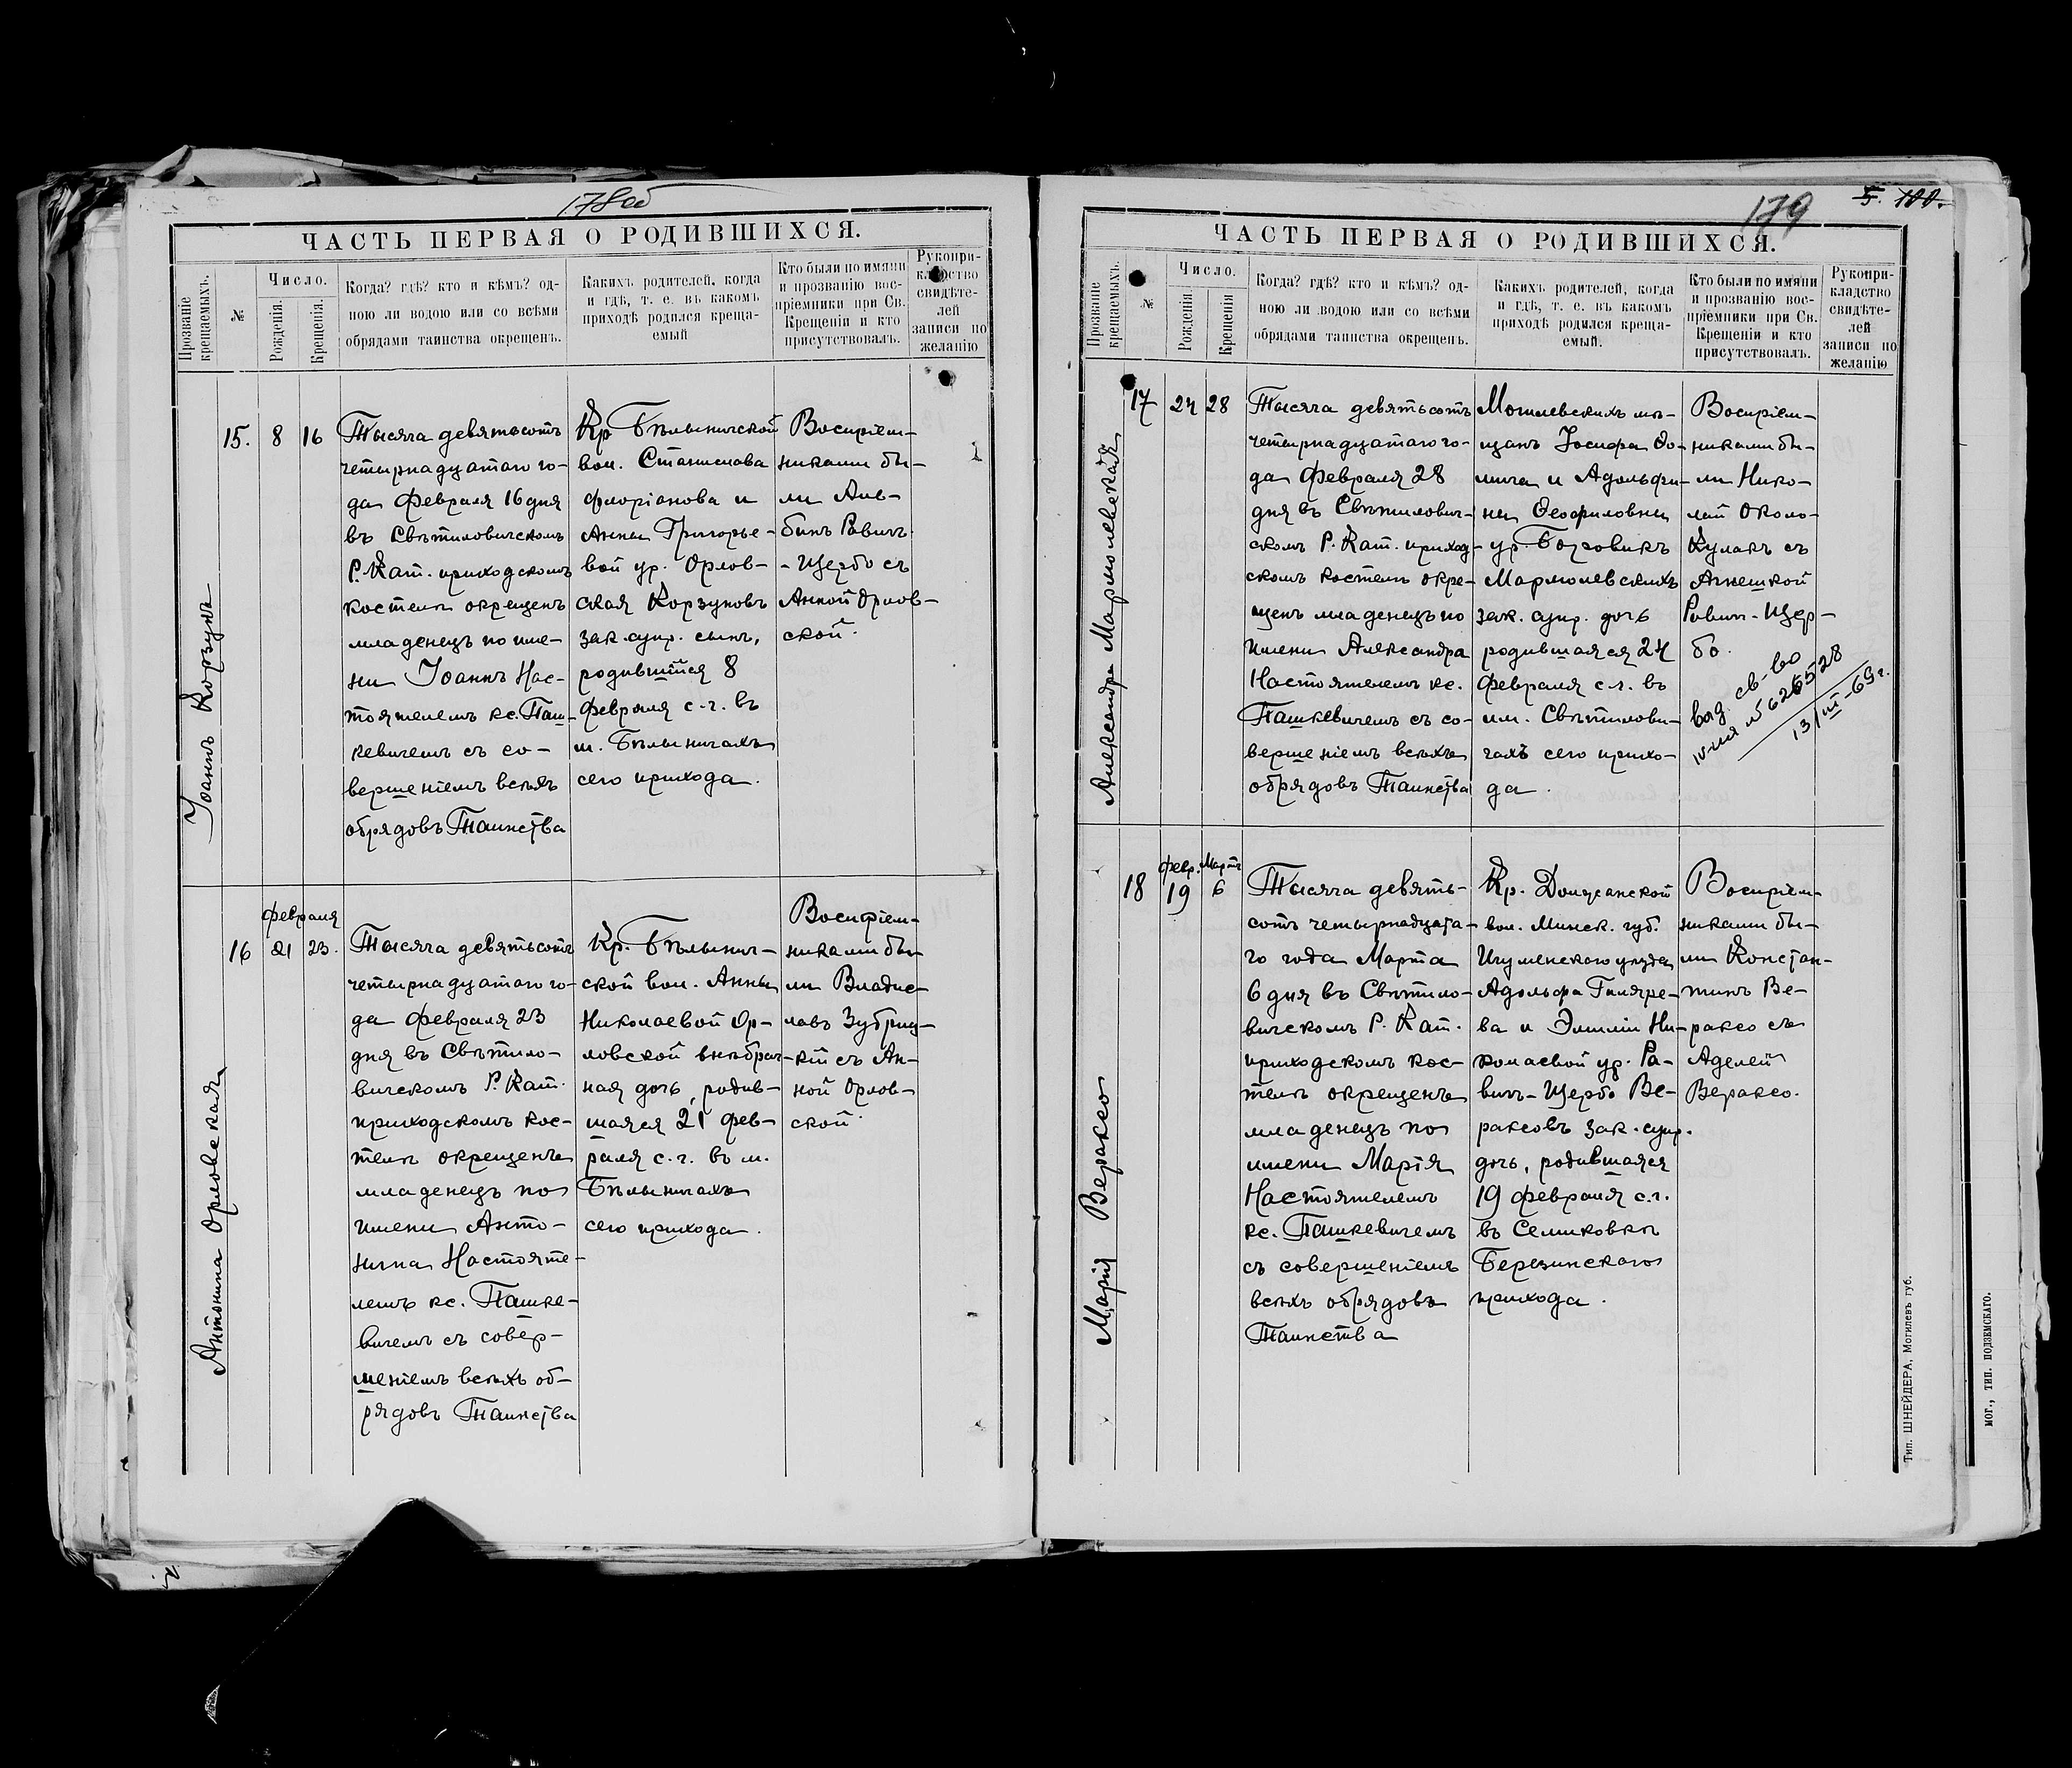 178об
ЧАСТЬ ПЕРВАЯ О РОДИВШИХСЯ.
Прозваніе крещаемыхъ.
№
Число.
Рожденія.
Крещенія.
Когда? гдѣ? кто и кѣмъ? од-
ною ли водою или со всѣми
обрядами таинства окрещенъ.
Какихъ родителей, когда
и гдѣ, т. е. въ какомъ
приходѣ родился креща-
емый
Кто были по имяни
и прозванію вос-
пріемники при Св.
Крещеніи и кто
присутствовалъ.
Рукопри-
кладство
свидѣте-
лей
записи по
желанію
Іоаннъ Корзунъ
15.
8
16
Тысяча девятьсотъ
четырнадцатаго го-
да Февраля 16 дня
въ Свѣтиловическомъ
Р. Кат. приходскомъ
костелѣ окрещенъ
младенецъ по име-
ни Іоаннъ Нас-
тоятелемъ кс. Паш-
кевичемъ съ со-
вершеніемъ всѣхъ
обрядовъ Таинства
Кр. Бѣлыничской
вол. Станислава
Флоріанова и
Анны Григорье-
вой ур. Орлов-
ская Корзуновъ
зак. супр. сынъ,
родившійся 8
Февраля с.г. въ
м. Бѣлыничахъ
сего прихода.
Воспріем-
никами бы-
ли Аль-
бинъ Равичъ
- Щербо съ
Анной Орлов-
ской.
Антонина Орловская
16
Февраля
21
23.
Тысяча девятьсотъ
четырнадцатаго го-
да Февраля 23
дня въ Свѣтило-
вическомъ Р. Кат.
приходскомъ кос-
телѣ окрещенъ
младенецъ по
имени Анто-
нина Настояте-
лемъ кс. Пашке-
вичемъ съ совер-
шеніемъ всѣхъ об-
рядовъ Таинства
Кр. Бѣлынич-
ской вол. Анны
Николаевой Ор-
ловской внѣбрач-
ная дочь, родив-
шаяся 21 фев-
раля с.г. въ м.
Бѣлыничахъ
сего прихода.
Воспріем-
никами бы-
ли Владис-
лавъ Зубриц-
кій съ Ан-
ной Орлов-
ской.
179
5. 100.
ЧАСТЬ ПЕРВАЯ О РОДИВШИХСЯ.
Прозваніе крещаемыхъ.
№
Число.
Рожденія
Крещенія
Когда? гдѣ? кто и кѣмъ? од-
ною ли водою или со всѣми
обрядами таинства окрещенъ.
Какихъ родителей, когда
и гдѣ, т. е. въ какомъ
приходѣ родился креща-
емый.
Кто были по имяни
и прозванію вос-
пріемники при Св.
Крещеніи и кто
присутствовалъ.
Рукопри-
кладство
свидѣте-
лей
записи по
желанію
Александра Мармолевская
17
24
28
Тысяча девятьсотъ
четырнадцатаго го-
да Февраля 28
дня въ Свѣтилович-
скомъ Р. Кат. приход-
скомъ костелѣ окре-
щенъ младенецъ по
имени Александра
Настоятелемъ кс.
Пашкевичемъ съ со-
вершеніемъ всѣхъ
обрядовъ Таинства
Могилевскихъ мѣ-
щанъ Іосифа Ѳо-
мича и Адольфи-
ны Ѳеофиловны
ур.
Мармолевскихъ
зак. супр. дочь
родившаяся 24
Февраля с.г. въ
им. Свѣтилови-
чахъ сего прихо-
да.
Воспріем-
никами бы-
ли Нико-
лай Около-
Кулакъ съ
Агнешкой
Равич-Щер-
бо.
выд. св-во
13/III-69г.
Марія Вераксо
18
Февр.
19
Мартъ
6
Тысяча девять-
сотъ четырнадцата-
го года Марта
6 дня въ Свѣтило-
вическомъ Р. Кат.
приходскомъ кос-
телѣ окрещенъ
младенецъ по
имени Марія
Настоятелемъ
кс. Пашкевичемъ
съ совершеніемъ
всѣхъ обрядовъ
Таинства
Кр. Должанской
вол. Минск. губ.
Игуменскаго уѣзда
Адольфа Гиляре-
ва и Эмиліи Ни-
колаевой ур. Ра-
вичъ-Щербо Ве-
раксовъ зак. супр.
дочь, родившаяся
19 Февраля с.г.
въ Селиковкѣ
Березинскаго
прихода.
Воспріем-
никами бы-
ли Констан-
тинъ Ве-
раксо съ
Аделей
Вераксо.
Тип. ШНЕЙДЕРА, Могилевъ губ.
МОГ., ТИП. ПОДЗЕМСКАГО.